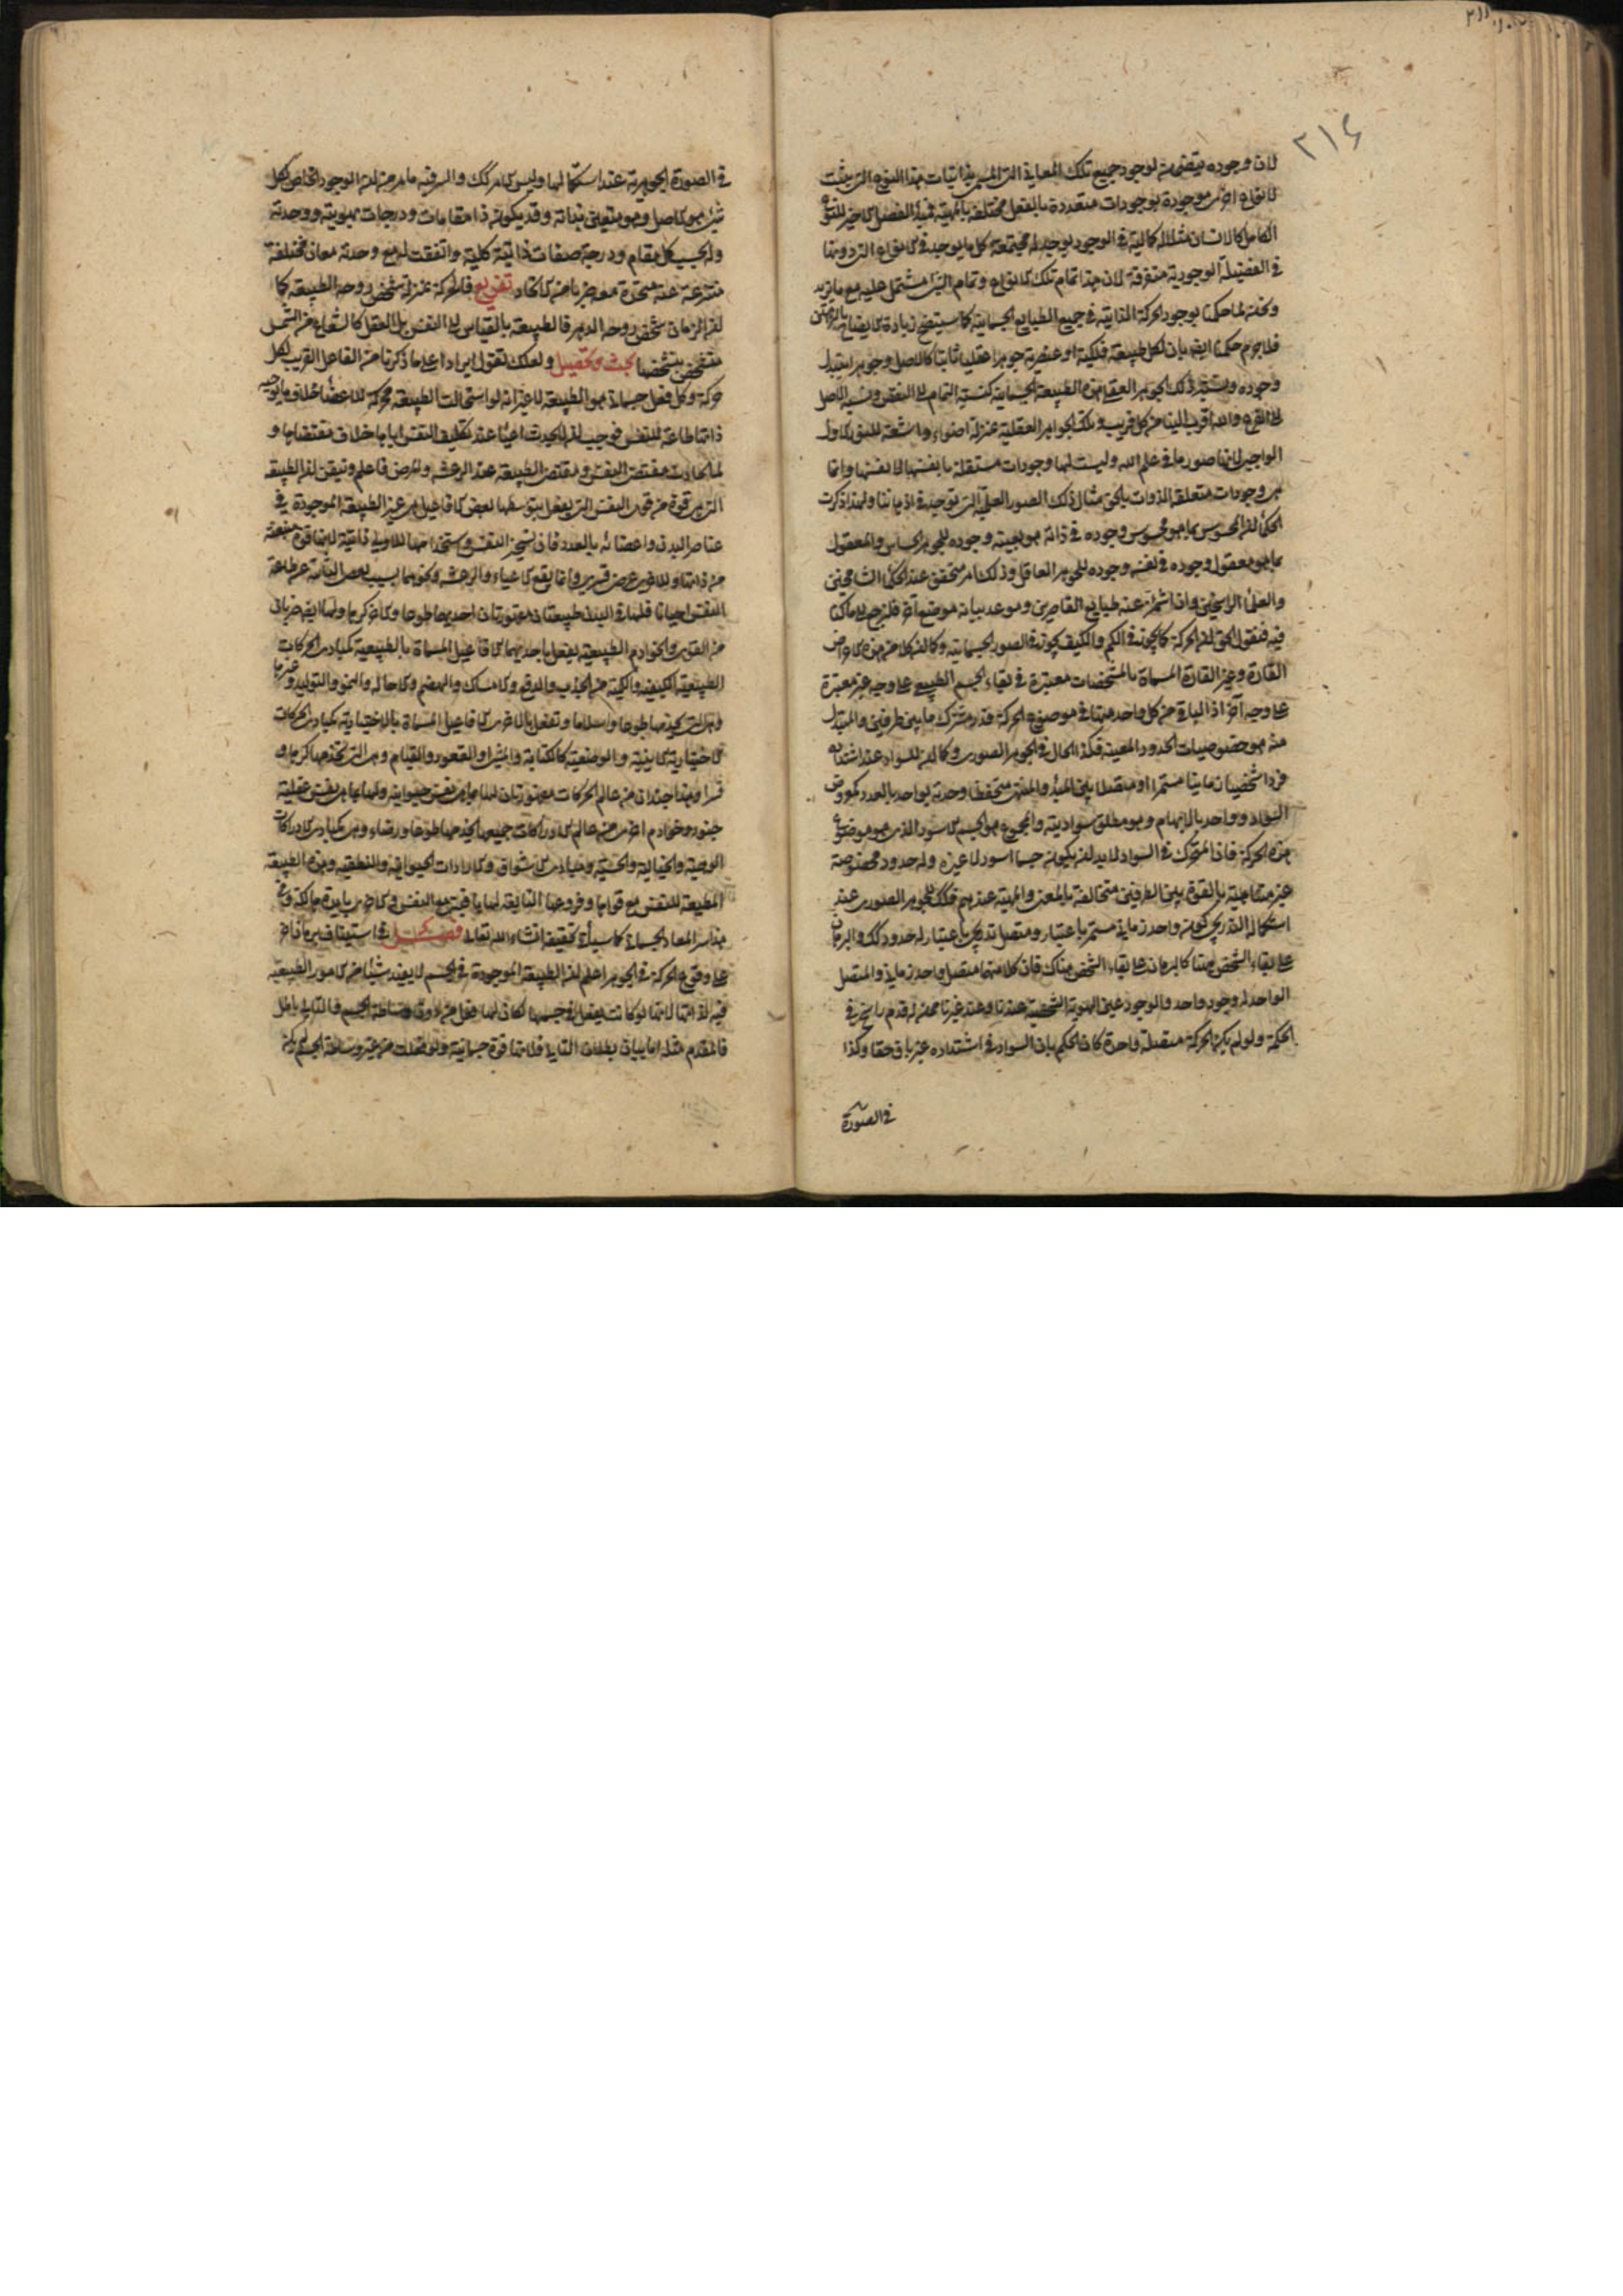 ۲۱۴
لان وجوده يتضمن لوجود جميع تلك المعاني التي ليس ذاتيات هذا النوع التي بينت
لانواع اخرى موجودة بوجودات متعددة بالفعل مختلفة بالمهية فهذا الفصل الاخير للنوع
الكامل كالانسان مثلا له كمالية في الوجود يوجد له مجتمعة كل ما يوجد في الانواع التي دونها
في الفضيلة الوجودية متفرقة لان هذا تمام تلك الانواع وتمام الشئ مشتمل عليه مع ما يزيد
ونحن لما حكمنا بوجود الحركة الذاتية في جميع الطبايع الجسمانية كما سيتضح زيادة الايضاح بالبرهان
فلاجرم حكمنا ايضا بان لكل طبيعة فلكية او عنصرية جوهرا عقليا ثابتا كالاصل وجوهر يتبدل
وجوده ونسبة ذلك الجوهر العقلي الى هذه الطبيعة الجسمانية كنسبة التمام الى النقص ونسبة الاصل
الى الفرع والله اقرب الينا من كل قريب وتلك الجواهر العقلية بمنزلة اضواء واشعة للنور الاول
الواجبي لانها صور ما في علم الله وليست لها وجودات مستقلة بانفسها لانفسها وانما
هي وجودات متعلقة الذوات بالحق مثال ذلك الصور العلمية التي توجد في اذهاننا ولهذا ذكرت
الحكماء ان المحسوس بما هو محسوس وجوده في ذاته هو بعينه وجوده للجوهر الحاس والمعقول
بما هو معقول وجوده في نفسه وجوده للجوهر العاقل وذلك امر محقق عند الحكماء الشامخين
والعلماء الراسخين وان اشمأز عنه طبايع القاصرين وموعد بيانه موضع آخر فلنرجع الى ما كنا
فيه فنقول الحق ان الحركة كما يكون في الكم والكيف يكون في الصور الجسمانية وكما ان كلا من هذه الاعراض
القارة وغير القارة المسماة بالمشخصات معتبرة في بقاء الجسم الطبيعي على وجه غير معتبرة
على وجه آخر اذ الباقي من كل واحد منها في موضوع الحركة قدر مشترك ما بين طرفين والمتبدل
منه هو خصوصيات الحدود المعينة فكذا الحال في الجوهر الصوري وكما ان للسواد عند اشتداده
فردا شخصيا زمانيا مستمرا او متصلا بين المبدأ والمنتهى منحفظا وحدته بواحد بالعدد كموضوع
السواد وواحد بالابهام وهو مطلق سوادية والمجموع هو الجسم الاسود الذي هو موضوع
هذه الحركة فان المتحرك في السواد لابد ان يكون جسما اسود لا غيره وله حدود مخصوصة
غير متناهية بالقوة بين الطرفين متخالفة بالمعنى والمهية عندهم فكذلك للجوهر الصوري عند
استكماله التدريجي كون واحد زماني مستمر باعتبار ومتصل تدريجي باعتبار له حدود كذلك والبرهان
على بقاء الشخص ههنا كالبرهان على بقاء الشخص هناك فان كلا منهما متصل واحد زماني والمتصل
الواحد له وجود واحد والوجود عين الهوية الشخصية عندنا وعند غيرنا ممن له قدم راسخ في
الحكمة ولو لم يكن الحركة متصلة واحدة كان الحكم بان السواد في اشتداده غير باق حقا وكذا
في الصورة
في الصورة الجوهرية عند استكمالها وليس الامر كذلك والسر فيه ما مر من ان الوجود الخاص لكل
شئ هو الاصل وهو متعين بذاته وقد يكون ذا مقامات ودرجات بهويته ووحدته
وله بحسب كل مقام ودرجة صفات ذاتية كلية واتفقت له مع وحدته معان مختلفة
منتزعة عنه متحدة معه ضربا من الاتحاد تفريع فالحركة بمنزلة شخص روحه الطبيعة كما
ان الزمان شخص روحه الدهر فالطبيعة بالقياس الى النفس بل العقل كالشعاع من الشمس
متشخص بتشخصها بحث وتحصيل ولعلك تقول ايرادا على ما ذكرنا من الفاعل القريب لكل
حركة وكل فعل جسماني هو الطبيعة لا غير انه لو استحالت الطبيعة محركة للاعضاء خلاف ما يوجبه
ذاتها طاعة للنفس فوجب ان لا يحدث اعياء عند تكليف النفس اياها خلاف مقتضاها و
لما تجاذبت مقتضى النفس ومقتضى الطبيعة عند الرعشة والمرض فاعلم وتيقن ان الطبيعة
التي هي قوة من قوى النفس التي يفعل بتوسطها بعض الافاعيل هي غير الطبيعة الموجودة في
عناصر البدن واعضائه بالعدد فان تسخير النفس واستخدامها للاولى ذاتية لانها قوة منبعثة
من ذاتها وللاخرى عرضي قسري وانما يقع الاعياء والرعشة ونحوهما بسبب تعصى الثانية عن طاعة
النفس احيانا فلها في البدن طبيعتان مقهورتان احديهما طوعا والاخرى كرها ولها ايضا ضربان
من القوى والخوادم الطبيعية يفعل باحديهما الافاعيل المسماة بالطبيعية كمبادى الحركات
الطبيعية الكيفية والكمية من الجذب والدفع والامساك والهضم والاحالة والنمو والتوليد وغيرها
وهي التي تخدمها طوعا واسلاما وتفعل بالاخرى الافاعيل المسماة بالاختيارية كمبادى الحركات
الاختيارية الاينية والوضعية كالكتابة والمشي والقعود والقيام وهي التي تخدمها كرها و
قسرا وهذا جندان من عالم الحركات مقهورتان لها بما هي نفس حيوانية ولها بما هي نفس عقلية
جنود وخوادم اخرى من عالم الادراكات جميعها تخدمها طوعا ورضاء وهي كمبادى الادراكات
الوهمية والخيالية والحسية ومبادى الاشواق والارادات الحيوانية والنطقية وهذه الطبيعة
المطيعة للنفس مع قواها وفروعها التابعة لها باقية مع النفس والاخرى بائدة هالكة وفي
هذا سر المعاد الجسماني كما سيأتي تحقيقه انشاء الله تعالى فصل في استيناف برهان اخر
على وقوع الحركة في الجوهر اعلم ان الطبيعة الموجودة في الجسم لا يفيد شيئا من الامور الطبيعية
فيه لذاتها لانها لو كانت يفعل في جسمها لكان لها فعل من دون وساطة الجسم والتالي باطل
فالمقدم مثله اما بيان بطلان التالي فلانها قوة جسمانية ولو فعلت من غير وساطة الجسم لم يكن